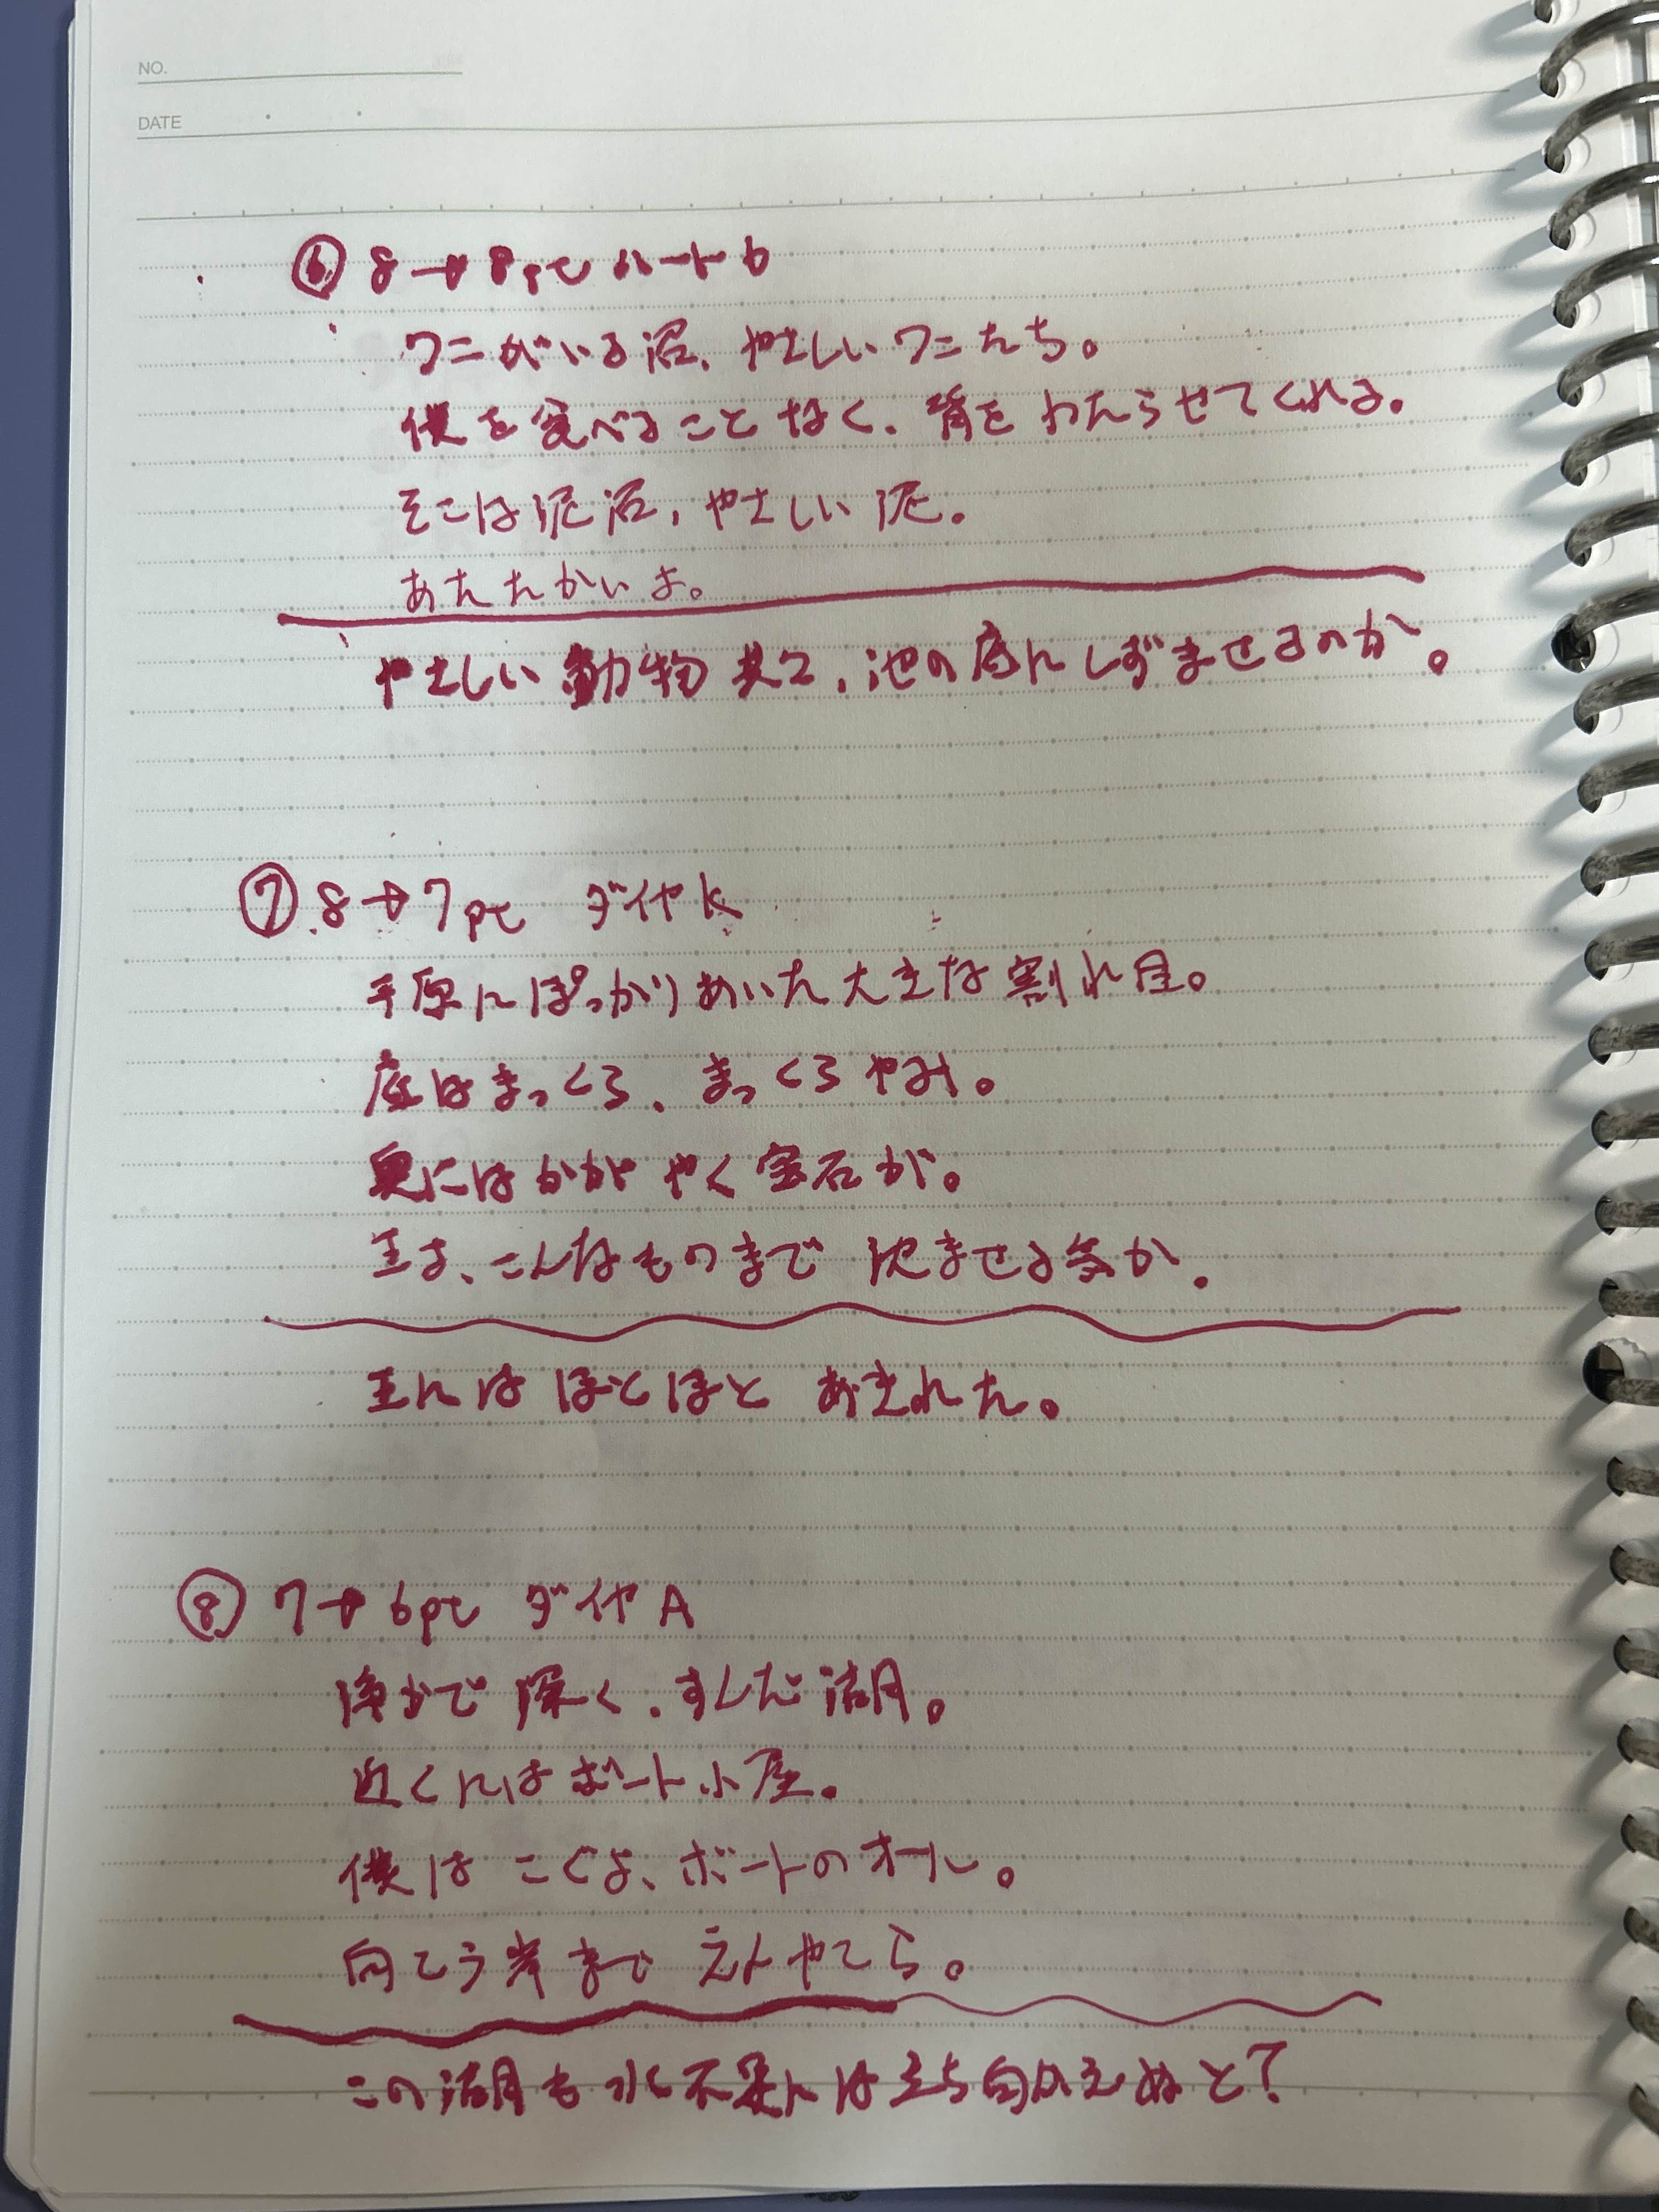 NO.
DATE
⑥ 8→8pt ハート6
ワニがいる沼、やさしいワニたち。
僕を食べることなく、背をわたらせてくれる。
そこは泥沼、やさしい泥。
あたたかいよ。
やさしい動物共々、池の底にしずませるのか。
⑦ 8→7pt ダイヤK
平原にぽっかりあいた大きな割れ目。
底はまっくら、まっくらやみ。
奥にはかがやく宝石が。
王よ、こんなものまで沈ませる気か。
王にはほとほとあきれた。
⑧ 7→6pt ダイヤA
静かで深く、すんだ湖。
近くにはボート小屋。
僕はこぐよ、ボートのオール。
向こう岸までえんやこら。
この湖も水不足には立ち向かえぬと?